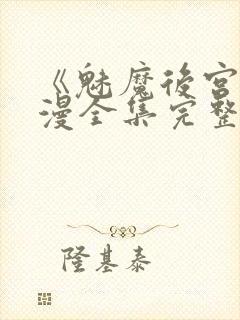 《魅魔后宫
漫全集完整
隆基泰